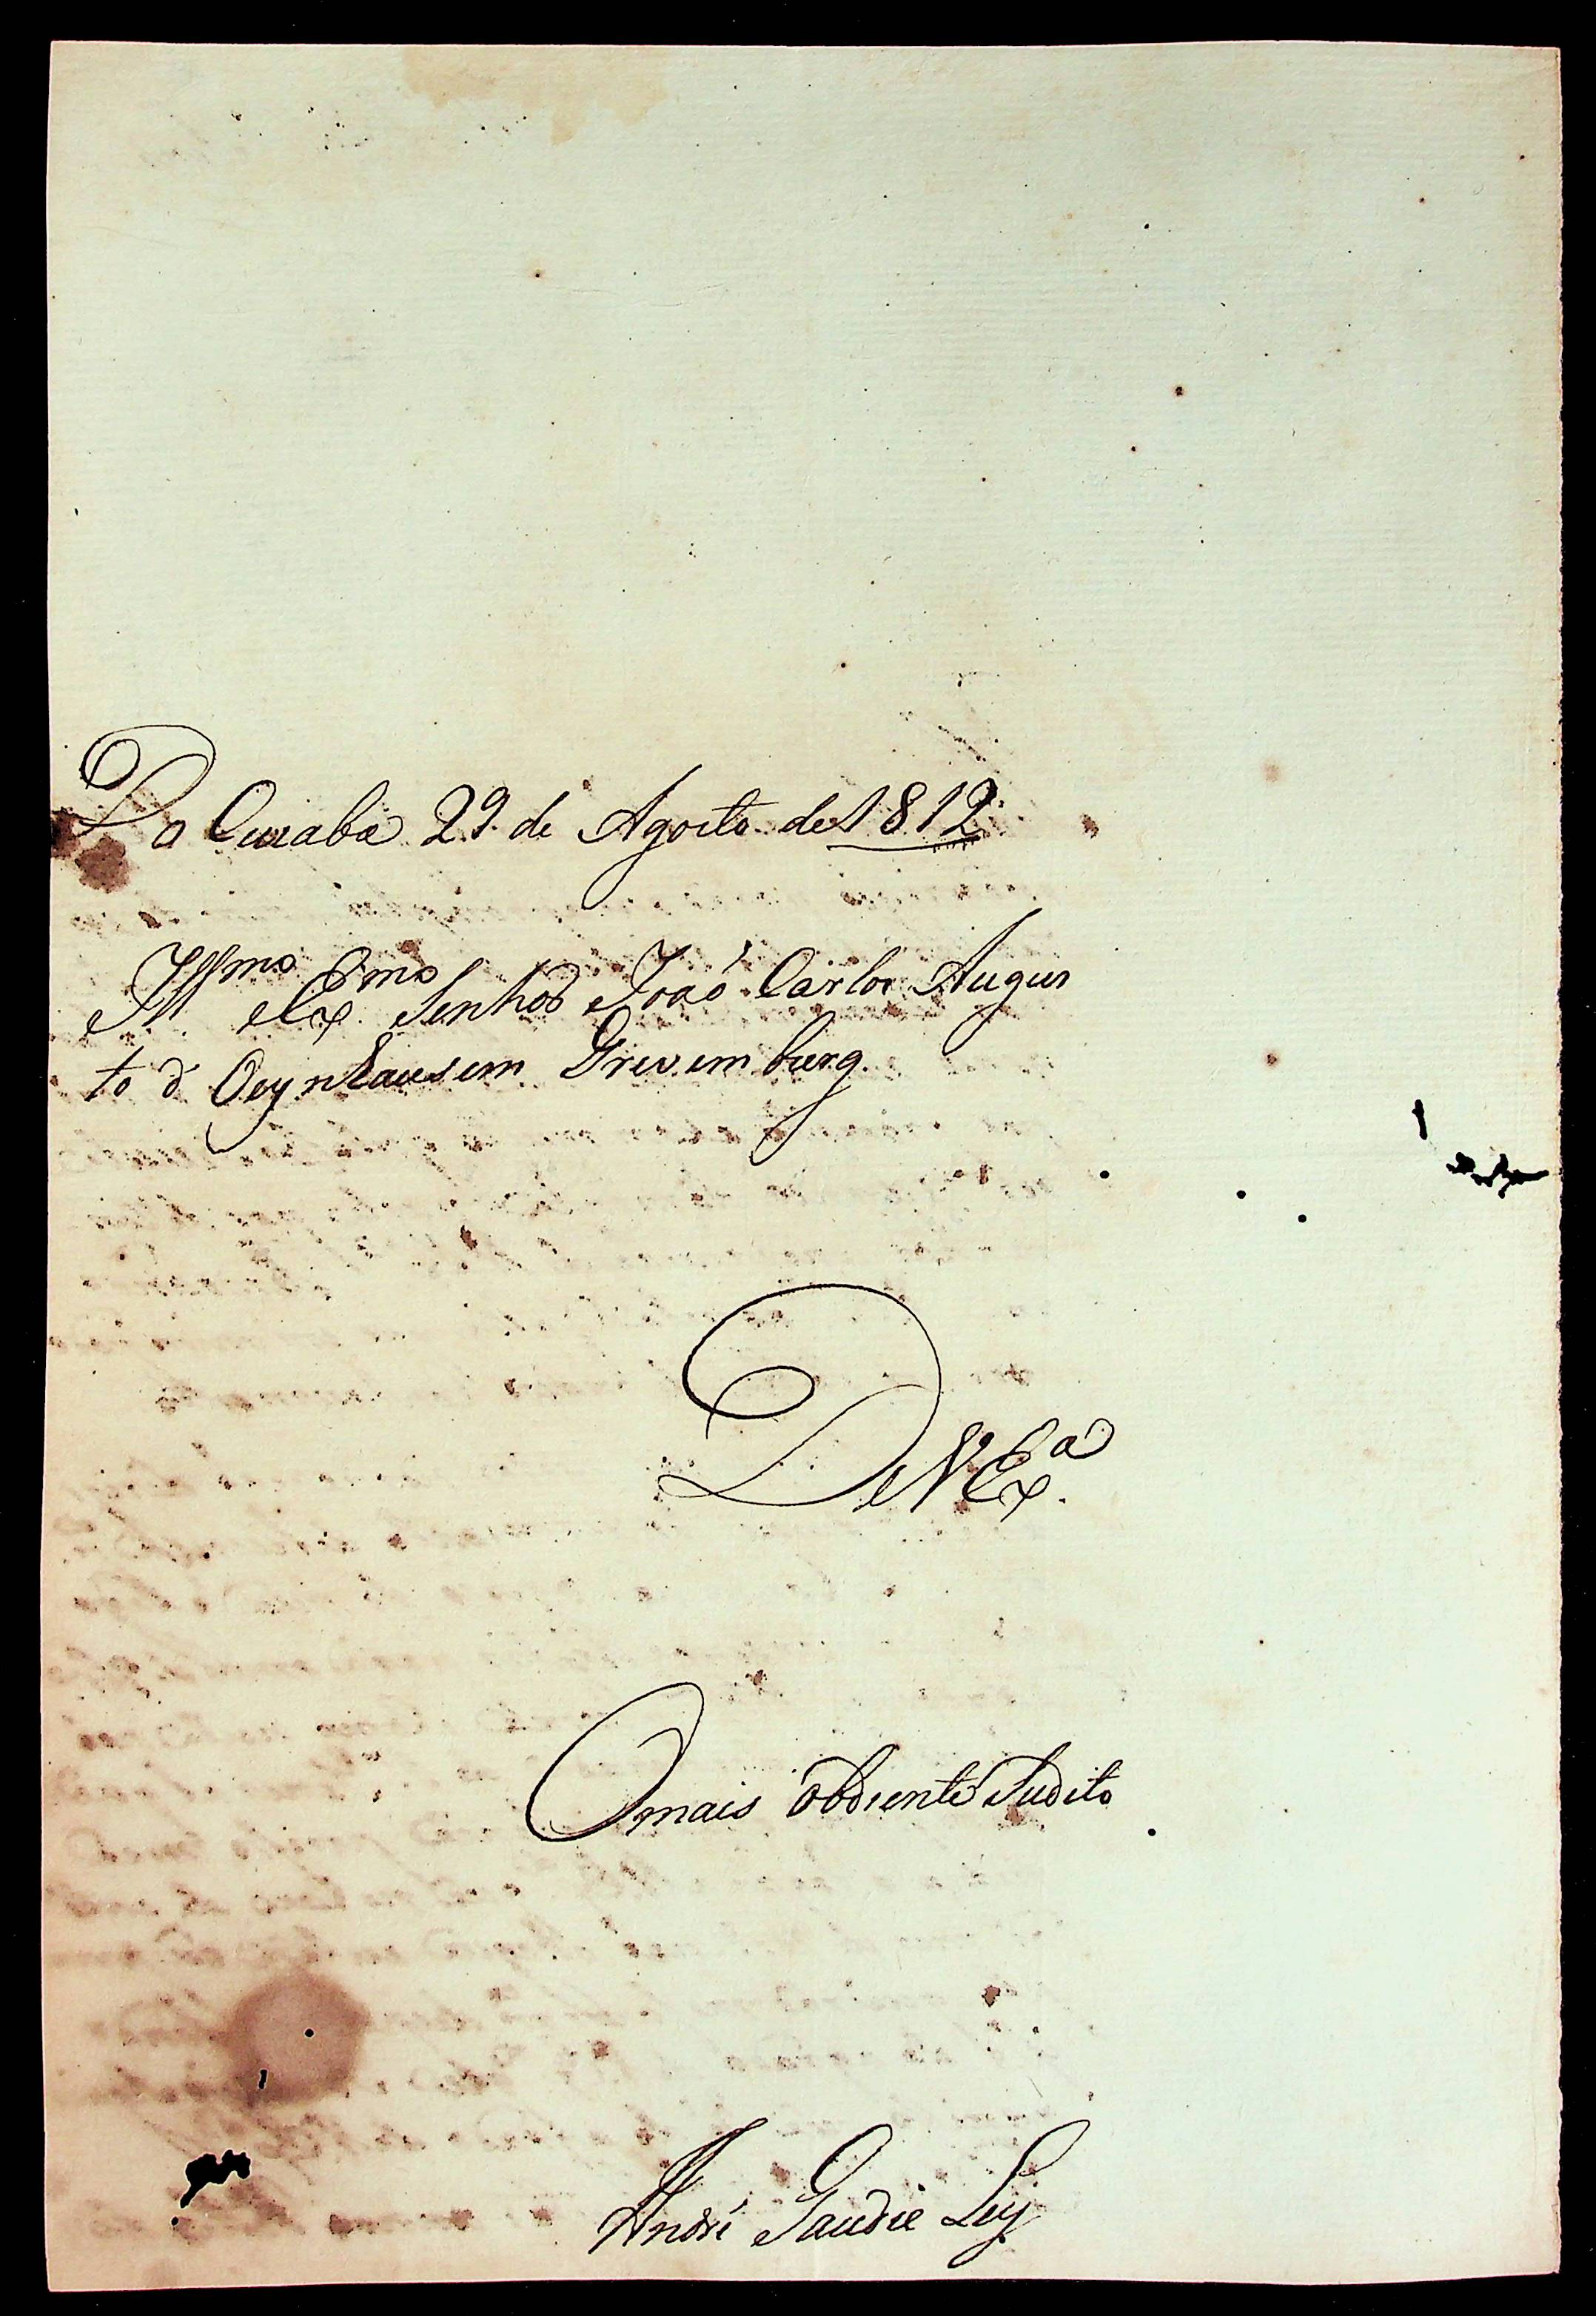 Da Cuiaba 29 de Agosto de 1812
Illmo e Exmo Senhor João Carlos Augus
to d' Oeynhausem Grevemburg.
De V Exa.
O mais obdiente Sudito
André Gaudie Ley